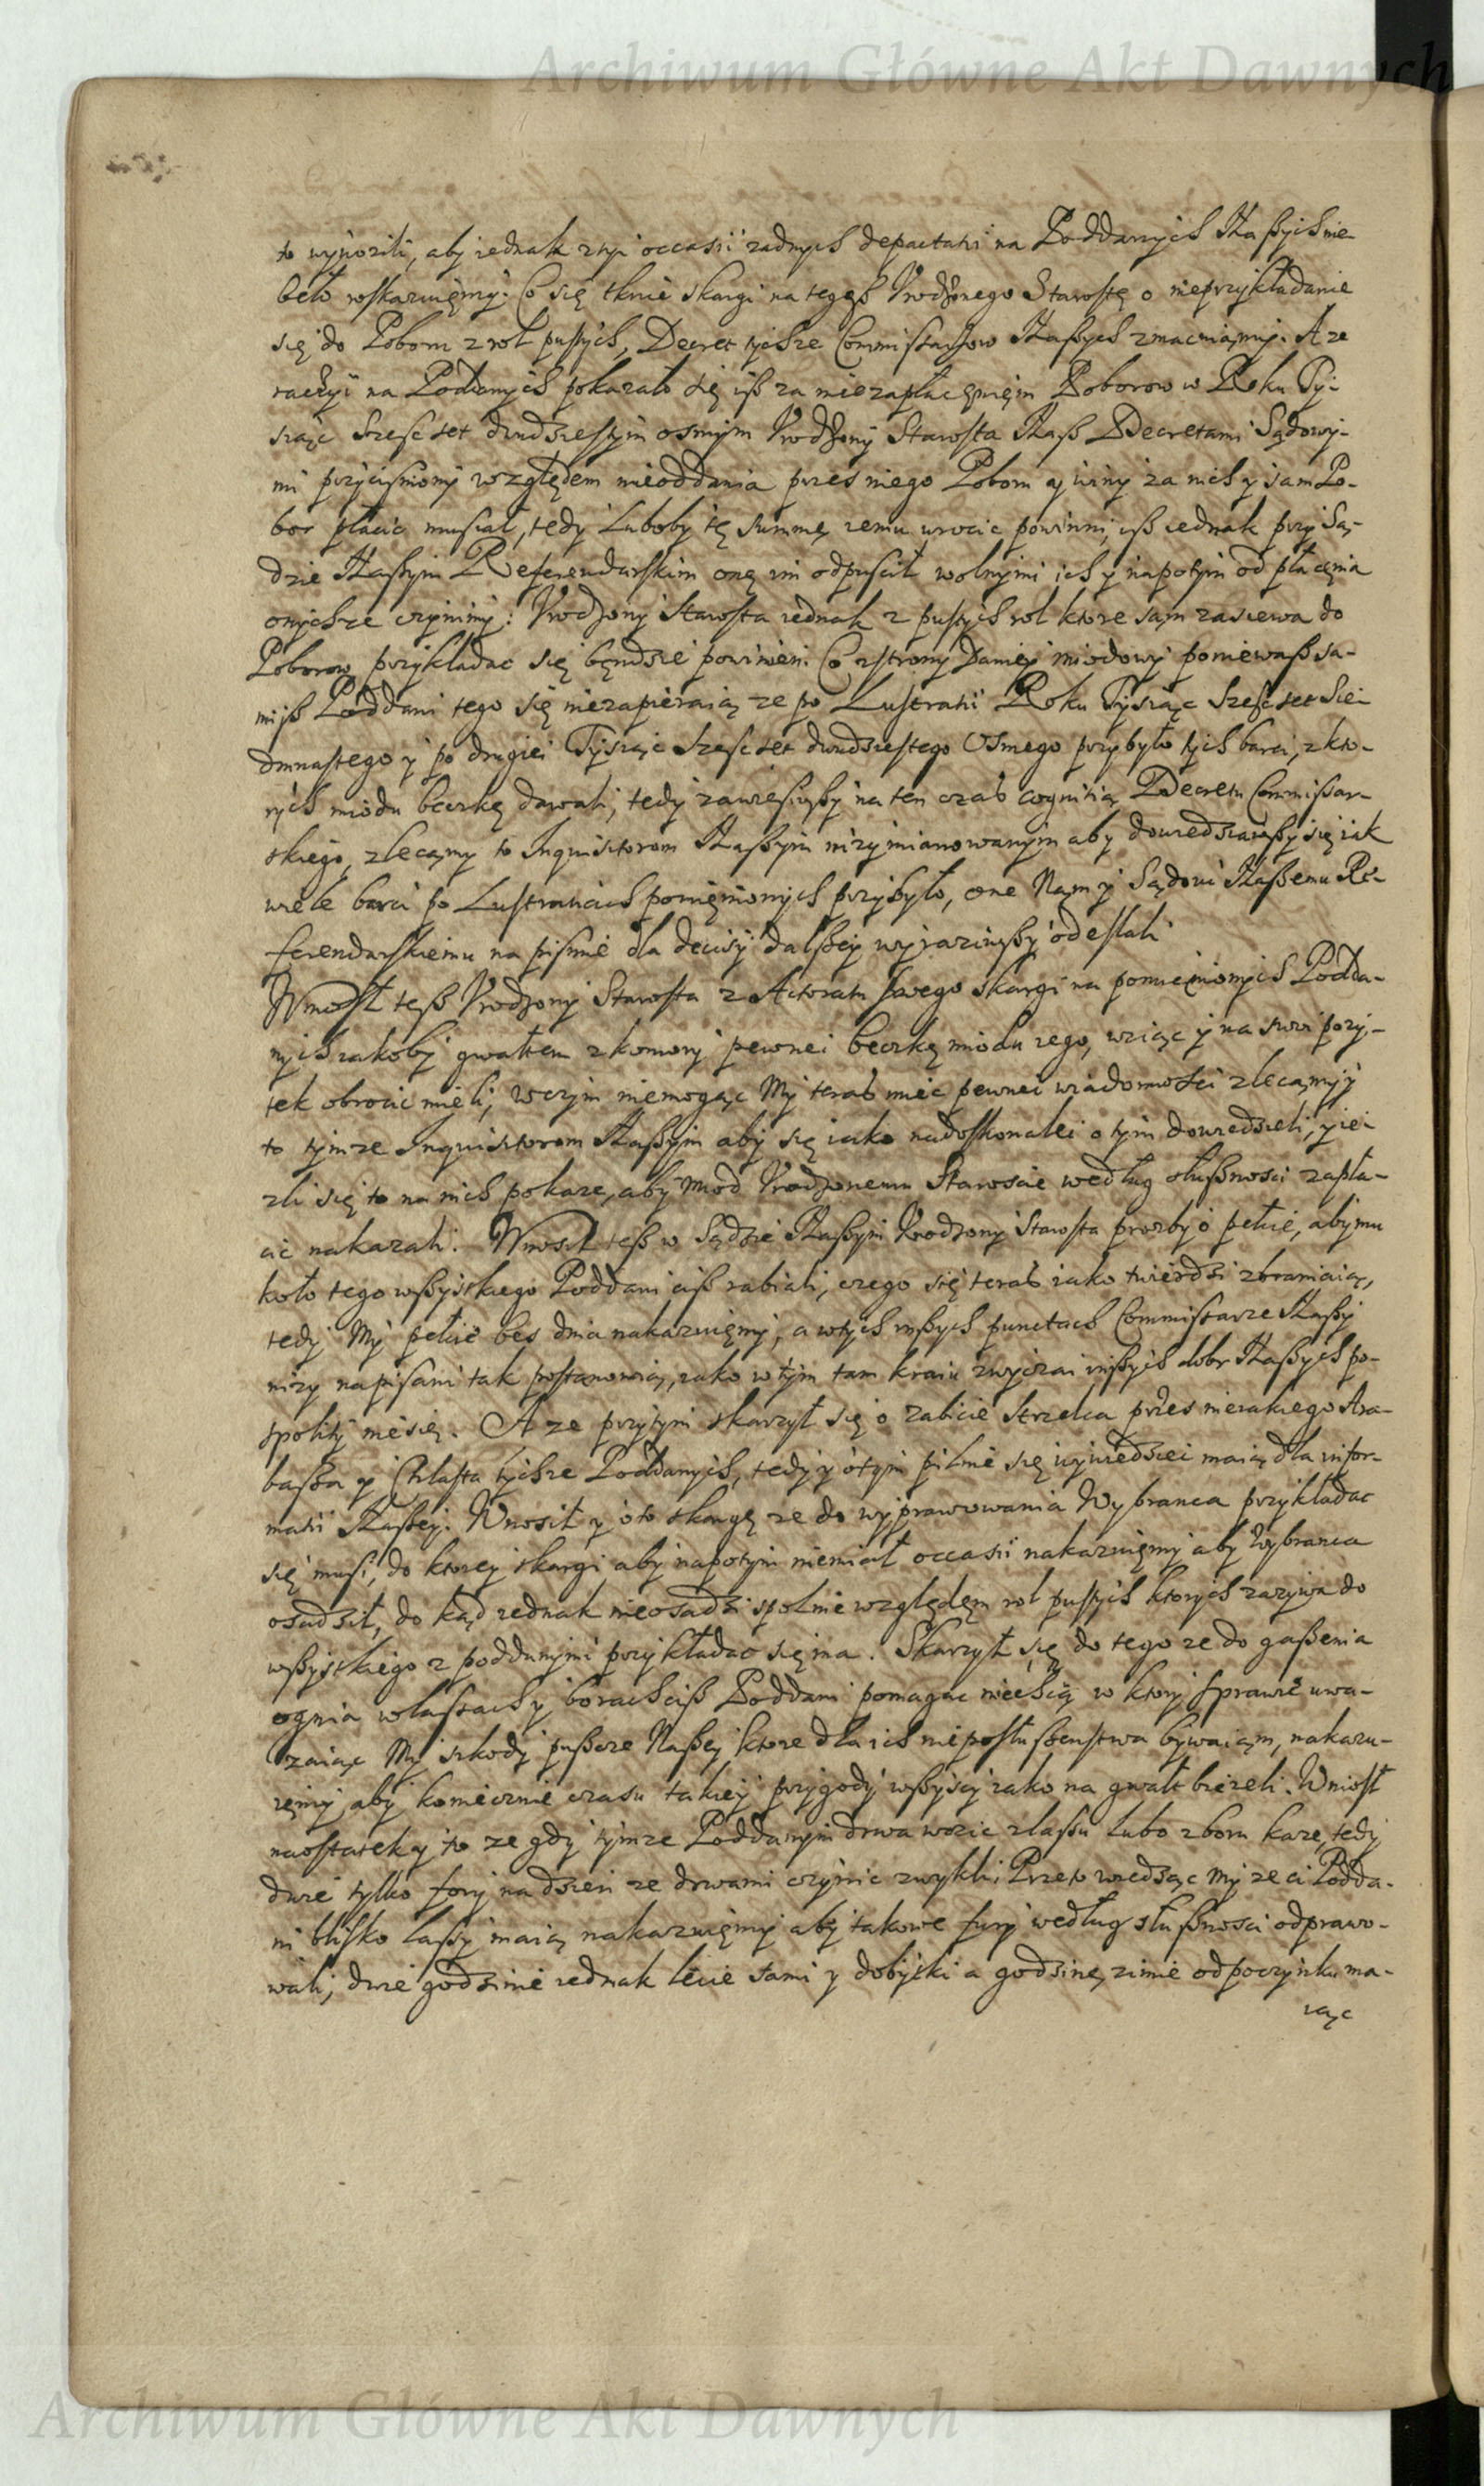 Archiwum Główne Akt Dawnych
to wynozili, aby iednak z tyi occasii zadnych depactatii na Poddanych Naßych nie
beło roskazuięmy. Co się tknie skargi na tegoß Urodzonego Starostę o nieprzykładanie
się do Poboru z rol pustych, Decret tychze Commissarzow Naßych zmacniamy. A ze
raczyi na Poddanych pokazało się iß za niezapłacęnięm Poborow w Roku Ty-
siąc szesc set dwudziestym osmym Urodzony Starosta Naß Decretami Sądowy-
mi przycisniony względem nieoddania przes niego Poboru y winy za nich y sam Po-
bor płacic musiał, tedy luboby tę summę iemu wrocic powinni, iß iednak przy Są-
dzie Naßym Referendarskim onę im odpuscił wolnymi ich y napotym od płacęnia
onychze czynimy: Urodzony Starosta iednak z pustych rol ktore sam zasiewa do
Poborow przykładac się będzie powinien. Co z strony Daniey miodowy poniewaß sa-
miß Poddani tego się niezapieraią ze po Lustratii Roku Tysiąc szesc set Sie-
dmnastego y po drugiei Tysiąc szesc set dwudziestego Osmego przybyło tych barci, z kto-
rych miodu beczkę dawali, tedy zawiesiwßy na ten czas cognitią Decretu Commissar-
skiego, zlecamy to Inquisitorom Naßym nizy mianowanym aby dowiedziawßy się iak
wiele barci po Lustratiach pomięnionych przybyło, one Nam y Sądowi Naßemu Re-
ferendarskiemu na pismie dla decisii dalßey wyraziwßy odesłali
Wniosł teß Urodzony Starosta z Actoratu swego skargi na pomienionych Podda-
nych iakoby gwałtem z komory pewnei beczkę miodu iego, wziąc y na swoi pozy-
tek obrocic mieli, w czym niemogąc My teras miec pewnei wiadomosci zlecamy y
to tymze Inquisitorom Naßym aby się iako nadoskonalei o tym dowiedzieli, y ie-
zli się to na nich pokaze, aby miod Urodzonemu Staroscie według słußnosci zapła-
cic nakazali. Wnosił teß w Sądzie Naßym Urodzony Starosta prozby o pełcie, aby mu
koło tego wßystkiego Poddani ciß rabiali, czego się teras iako twierdzi zbraniaią,
tedy My pełcie bes dnia nakazuięmy, a w tych inßych punctach Commissarze Naßy
nizy napisani tak postanowią, iako w tym tam kraiu zwyczai inßych dobr Naßych po-
spolity niesie. A ze przytym skarzył się o zabicie strzelca przes nieiakiego Ara-
baßa y Chlasta tychze Poddanych, tedy y o tym pilnie się wywiedziei maią dla infor-
matii Naßey. Wnosił y o to skargę ze do wyprawowania Wybranca przykładac
się musi, do ktorey skargi aby napotym niemiał occasii nakazuięmy aby Wybranca
osadził, do kąd iednak nieosadzi spolnie względęm rol pustych ktorych zazywa do
wßystkiego z poddanymi przykładac się ma. Skarzył się do tego ze do gaßenia
ognia w lassach y borach ciß Poddani pomagac niechcą w ktory sprawie uwa-
zaiąc My szkody pußcze Naßey ktore dla ich nieposłußenstwa bywaiam, nakazu-
ięmy aby koniecznie czasu takiey przygody wßyscy iako na gwałt biezeli. Wniosł
naostatek y to ze gdy tymze Poddanym drwa wozic z lassu lubo z boru kaze, tedy
dwie tylko fory na dzien ze drwami czynic zwykli. Przeto wiedząc My ze ci Podda-
ni blisko lassy maią nakazuięmy aby takowe fury według słußnosci odprawo-
wali, dwie godzinie iednak lecie sami y dobytki a godzinę zimie odpoczynku ma-
iąc
Archiwum Główne Akt Dawnych